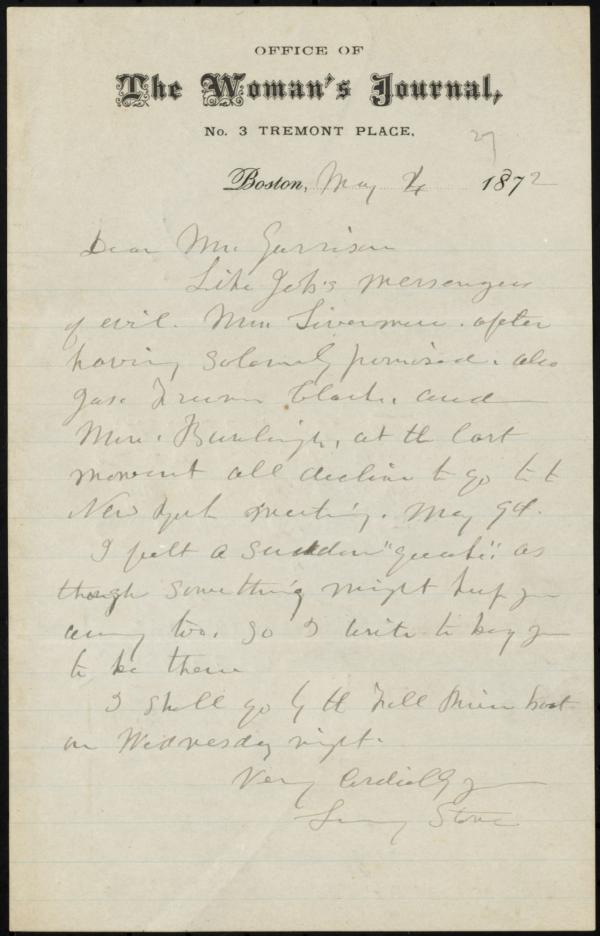 OFFICE OF
The Woman's Journal,
No. 3 TREMONT PLACE.
27
Boston, May 4 1872
Dear Mr. Garrison
Like Job's messengers
of evil. Mrs Livermore. after
having solemnly promised. also
Jas. Freeman Clarke. and
Mrs. Burleigh, at the last
moment all decline to go to t
New York meeting. May 9th.
I felt a sudden "quake". as
though something might keep you
away too. So I write to beg you
to be there
I shall go by the Fall River boat
on Wednesday night.
Very Cordially yr
Lucy Stone